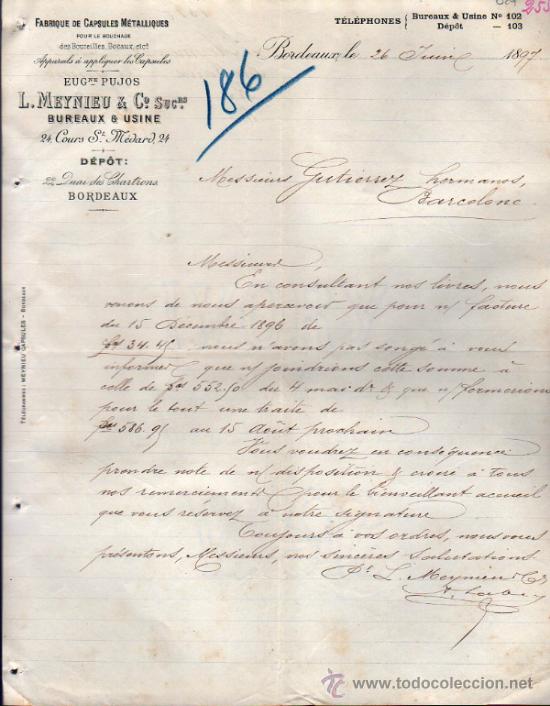 FABRIQUE DE CAPSULES MÉTALLIQUES
POUR LE BOUCHAGE
des Bouteilles, Bocaux, etc.
Appareils à appliquer les Capsules
EUGNE PUJOS
L. MEYNIEU & Co SUCRS
BUREAUX & USINE
24, Cours St Médard, 24
DÉPÔT:
22, Quai des Chartrons
BORDEAUX
TÉLÉPHONES { Bureaux & Usine No 102
Dépôt — 103
Bordeaux, le 26 Juin 1897
186
Messieurs Gutierrez hermanos,
Barcelone
Messieurs,
En consultant nos livres, nous
venons de nous apercevoir que pour n/ facture
du 15 Décembre 1896 de
frs 34.45 nous n'avons pas songé à vous
informer que n/ joindrions cette somme à
celle de frs 552.50 du 4 mai dr & que n/ formerions
pour le tout une traite de
frs 586.95 au 15 Août prochain
Vous voudrez en conséquence
prendre note de n/ disposition & croire à tous
nos remerciements pour le bienveillant accueil
que vous reservez à notre signature
Toujours à vos ordres, nous vous
présentons, Messieurs, nos sincères salutations
Pr L. Meynieu & Co
TÉLÉGRAMMES: MEYNIEU CAPSULES - BORDEAUX
todocoleccion
www.todocoleccion.net